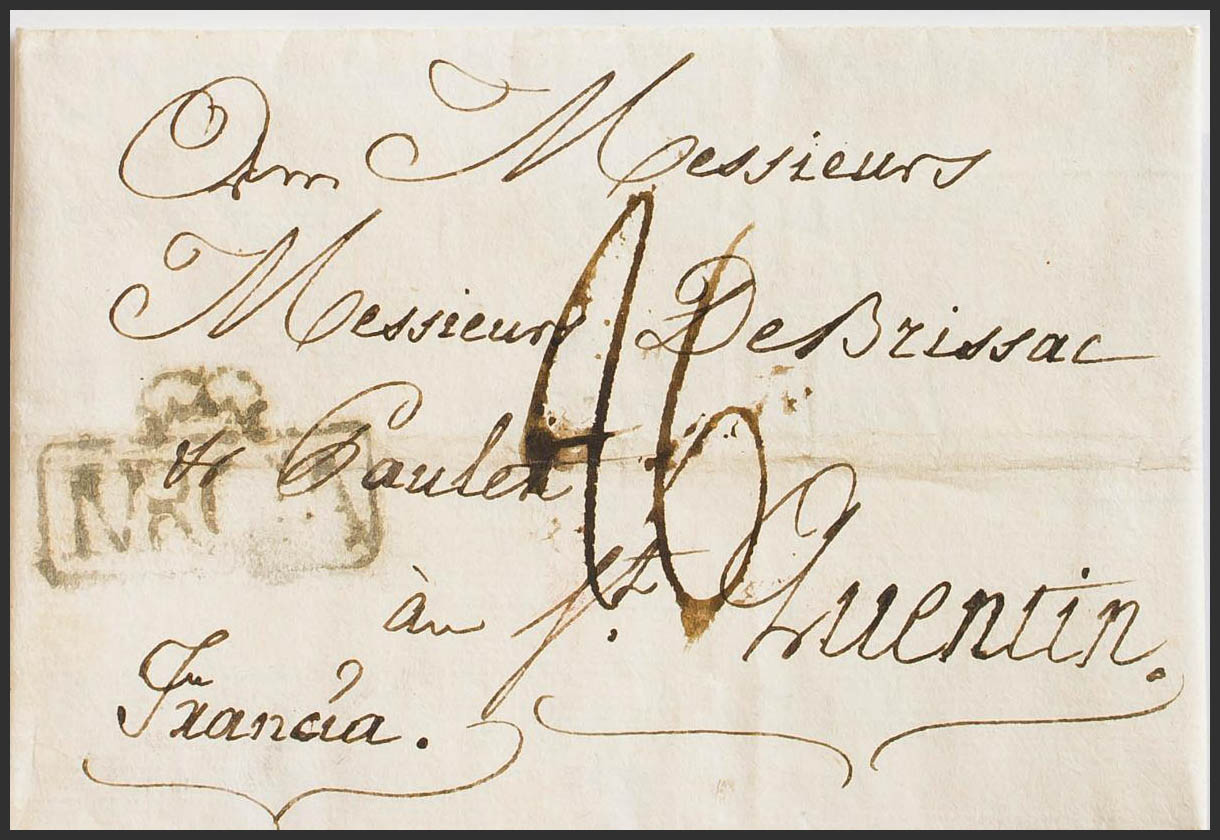 Messieurs
Messieurs De Brissac
& Paulet
à St. Quentin.
Francia.
16